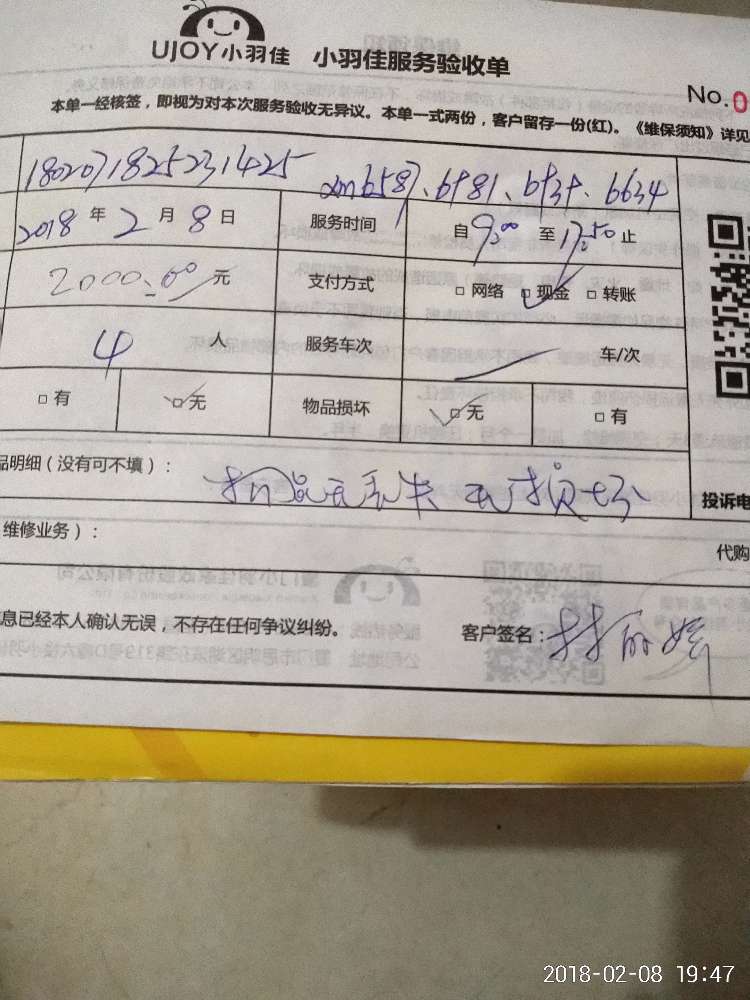 UJOY小羽佳 小羽佳服务验收单
No.0
本单一经核签，即视为对本次服务验收无异议。本单一式两份，客户留存一份(红)。《维保须知》详见
1802071825231425
2018年2月8日 服务时间 自9:00至17:50止
2000.00元 支付方式 □网络 □现金 □转账
4人 服务车次 车/次
□有 □无 物品损坏 □无 □有
品明细（没有可不填）：
投诉电
维修业务）：
代购
息已经本人确认无误，不存在任何争议纠纷。 客户签名：
2018-02-08 19:47